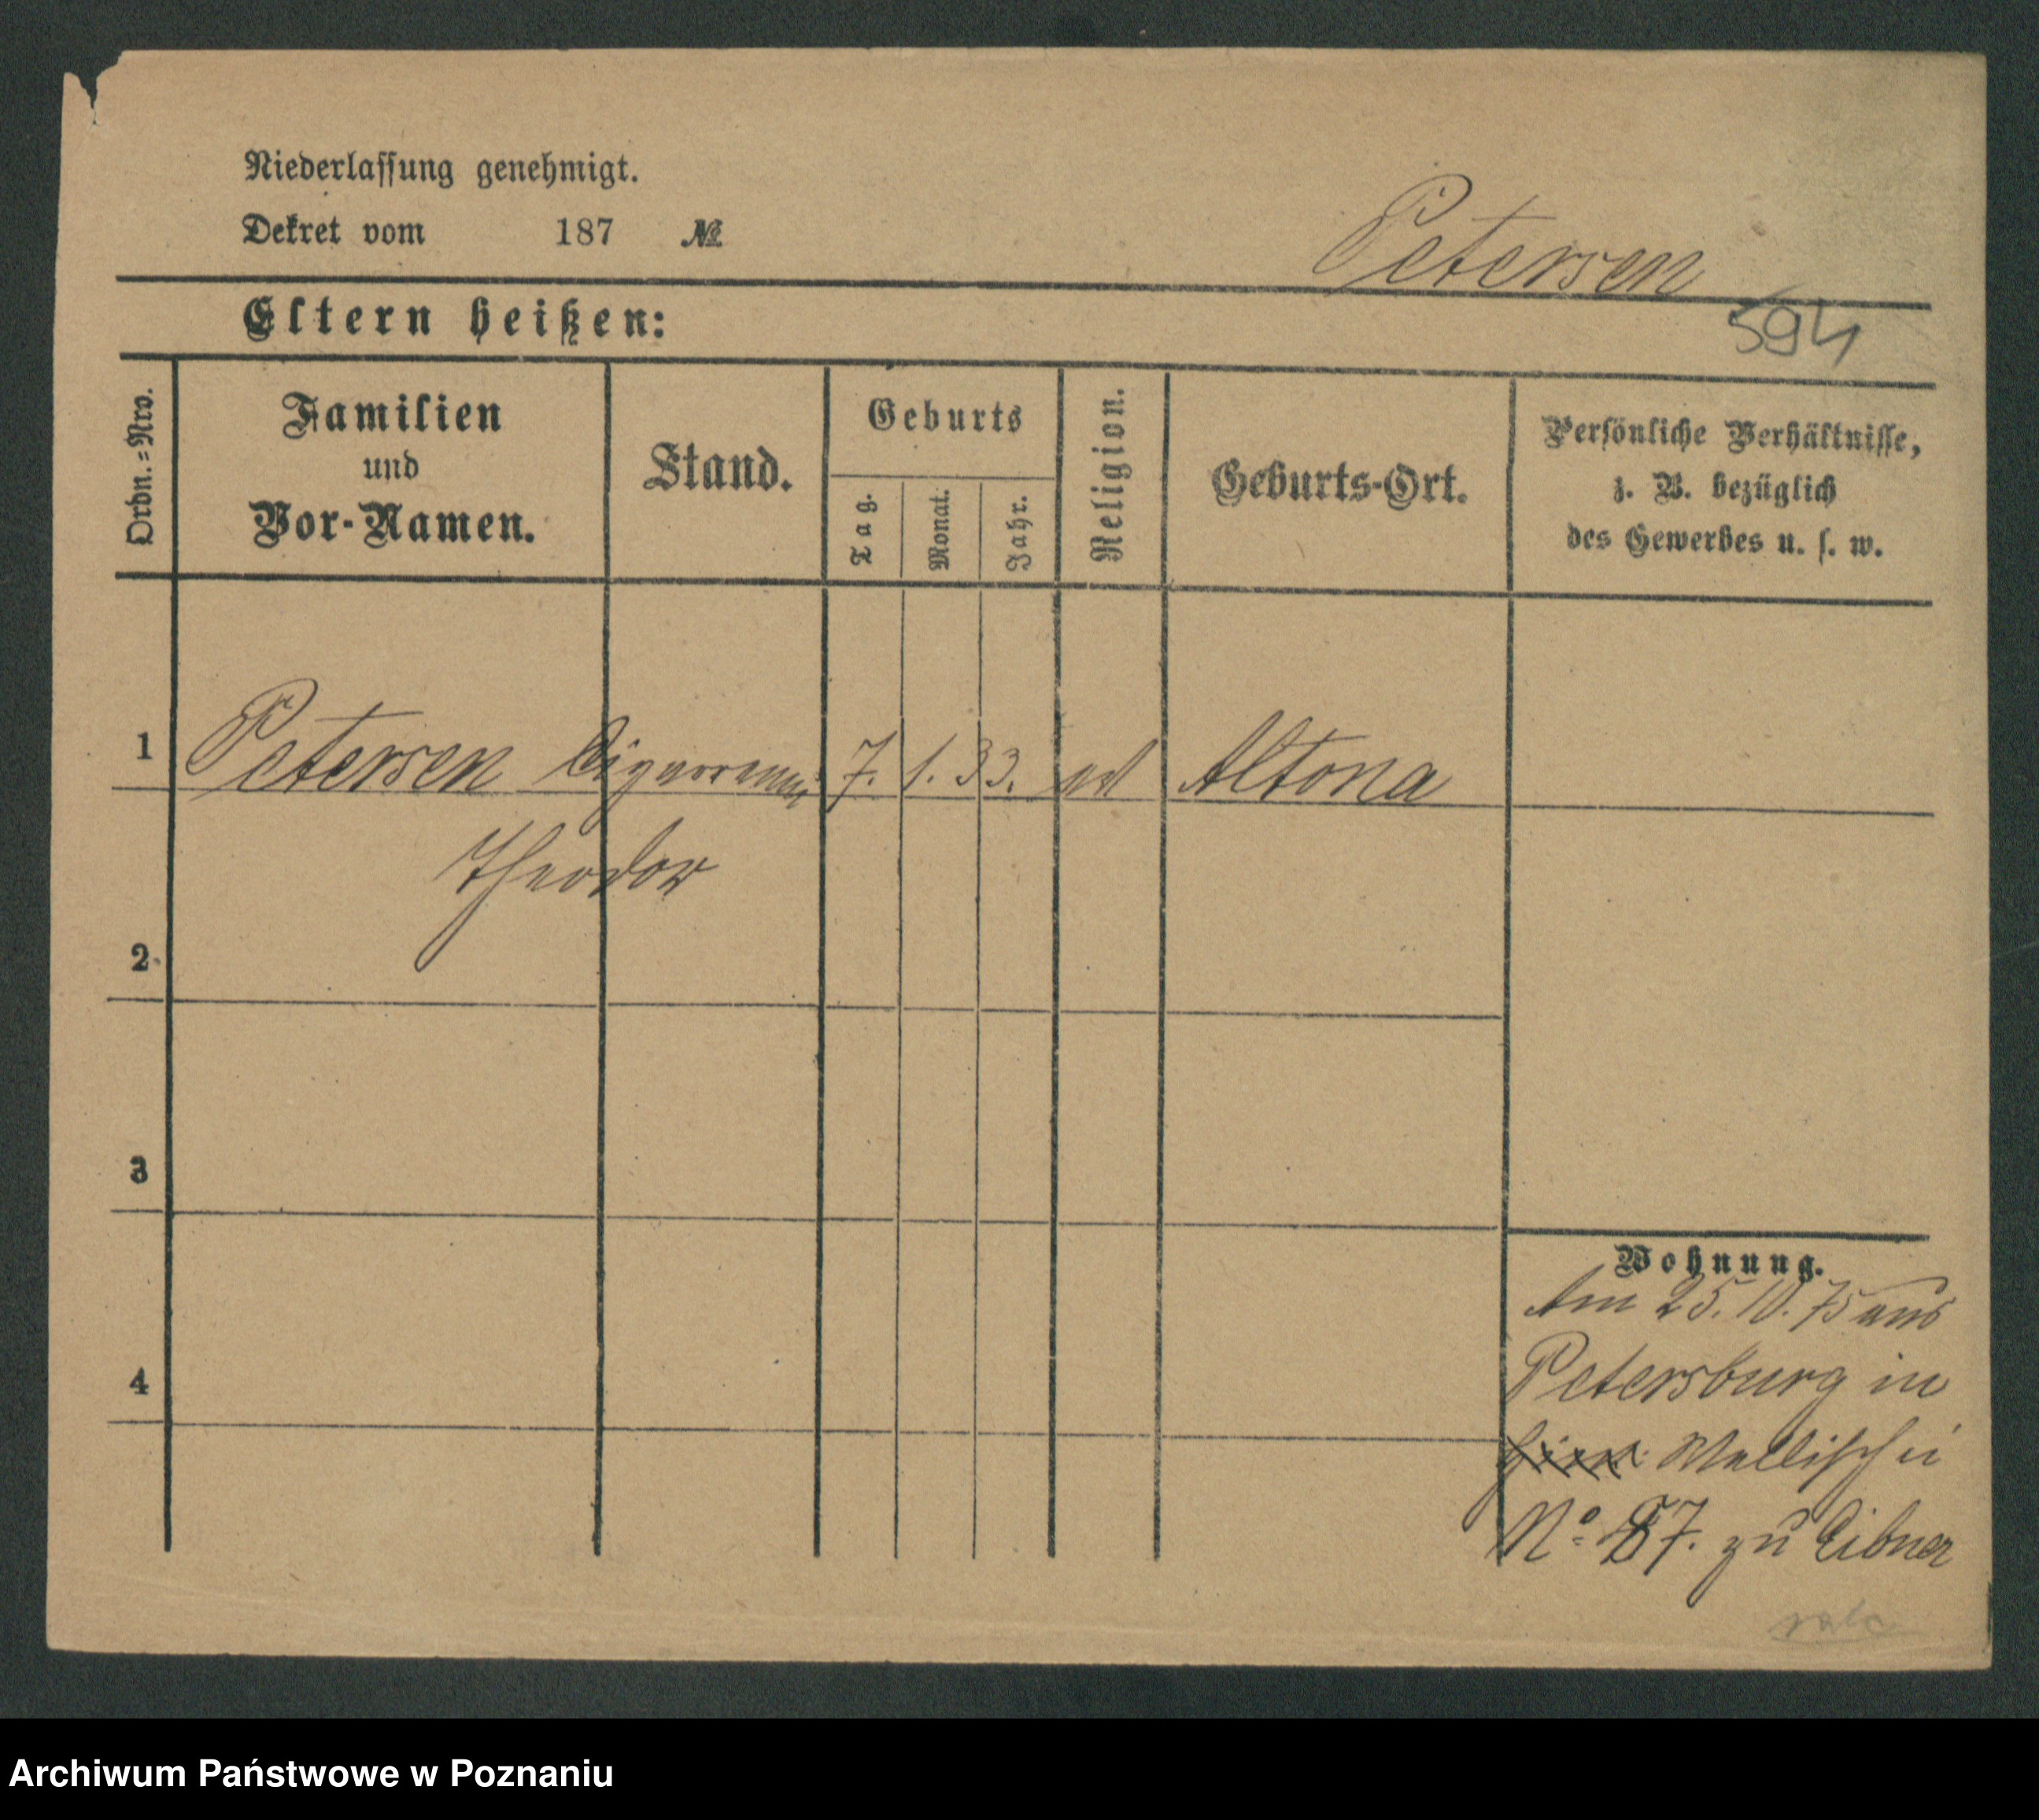 Niederlassung genehmigt.
Dekret vom 187 №
Petersen
594
Eltern heißen:
Ordn.=Nro.
Familien
und
Vor-Namen.
Stand.
Geburts
Tag.
Monat.
Jahr.
Religion.
Geburts-Ort.
Persönliche Verhältnisse,
z. B. bezüglich
des Gewerbes u. s. w.
1 Petersen 7. 1. 33. Altona
Theodor
2
3
4
Wohnung.
Am 25. 10. 75 aus
Petersburg in
Wallischei
No 87. zu Eibner
Archiwum Państwowe w Poznaniu